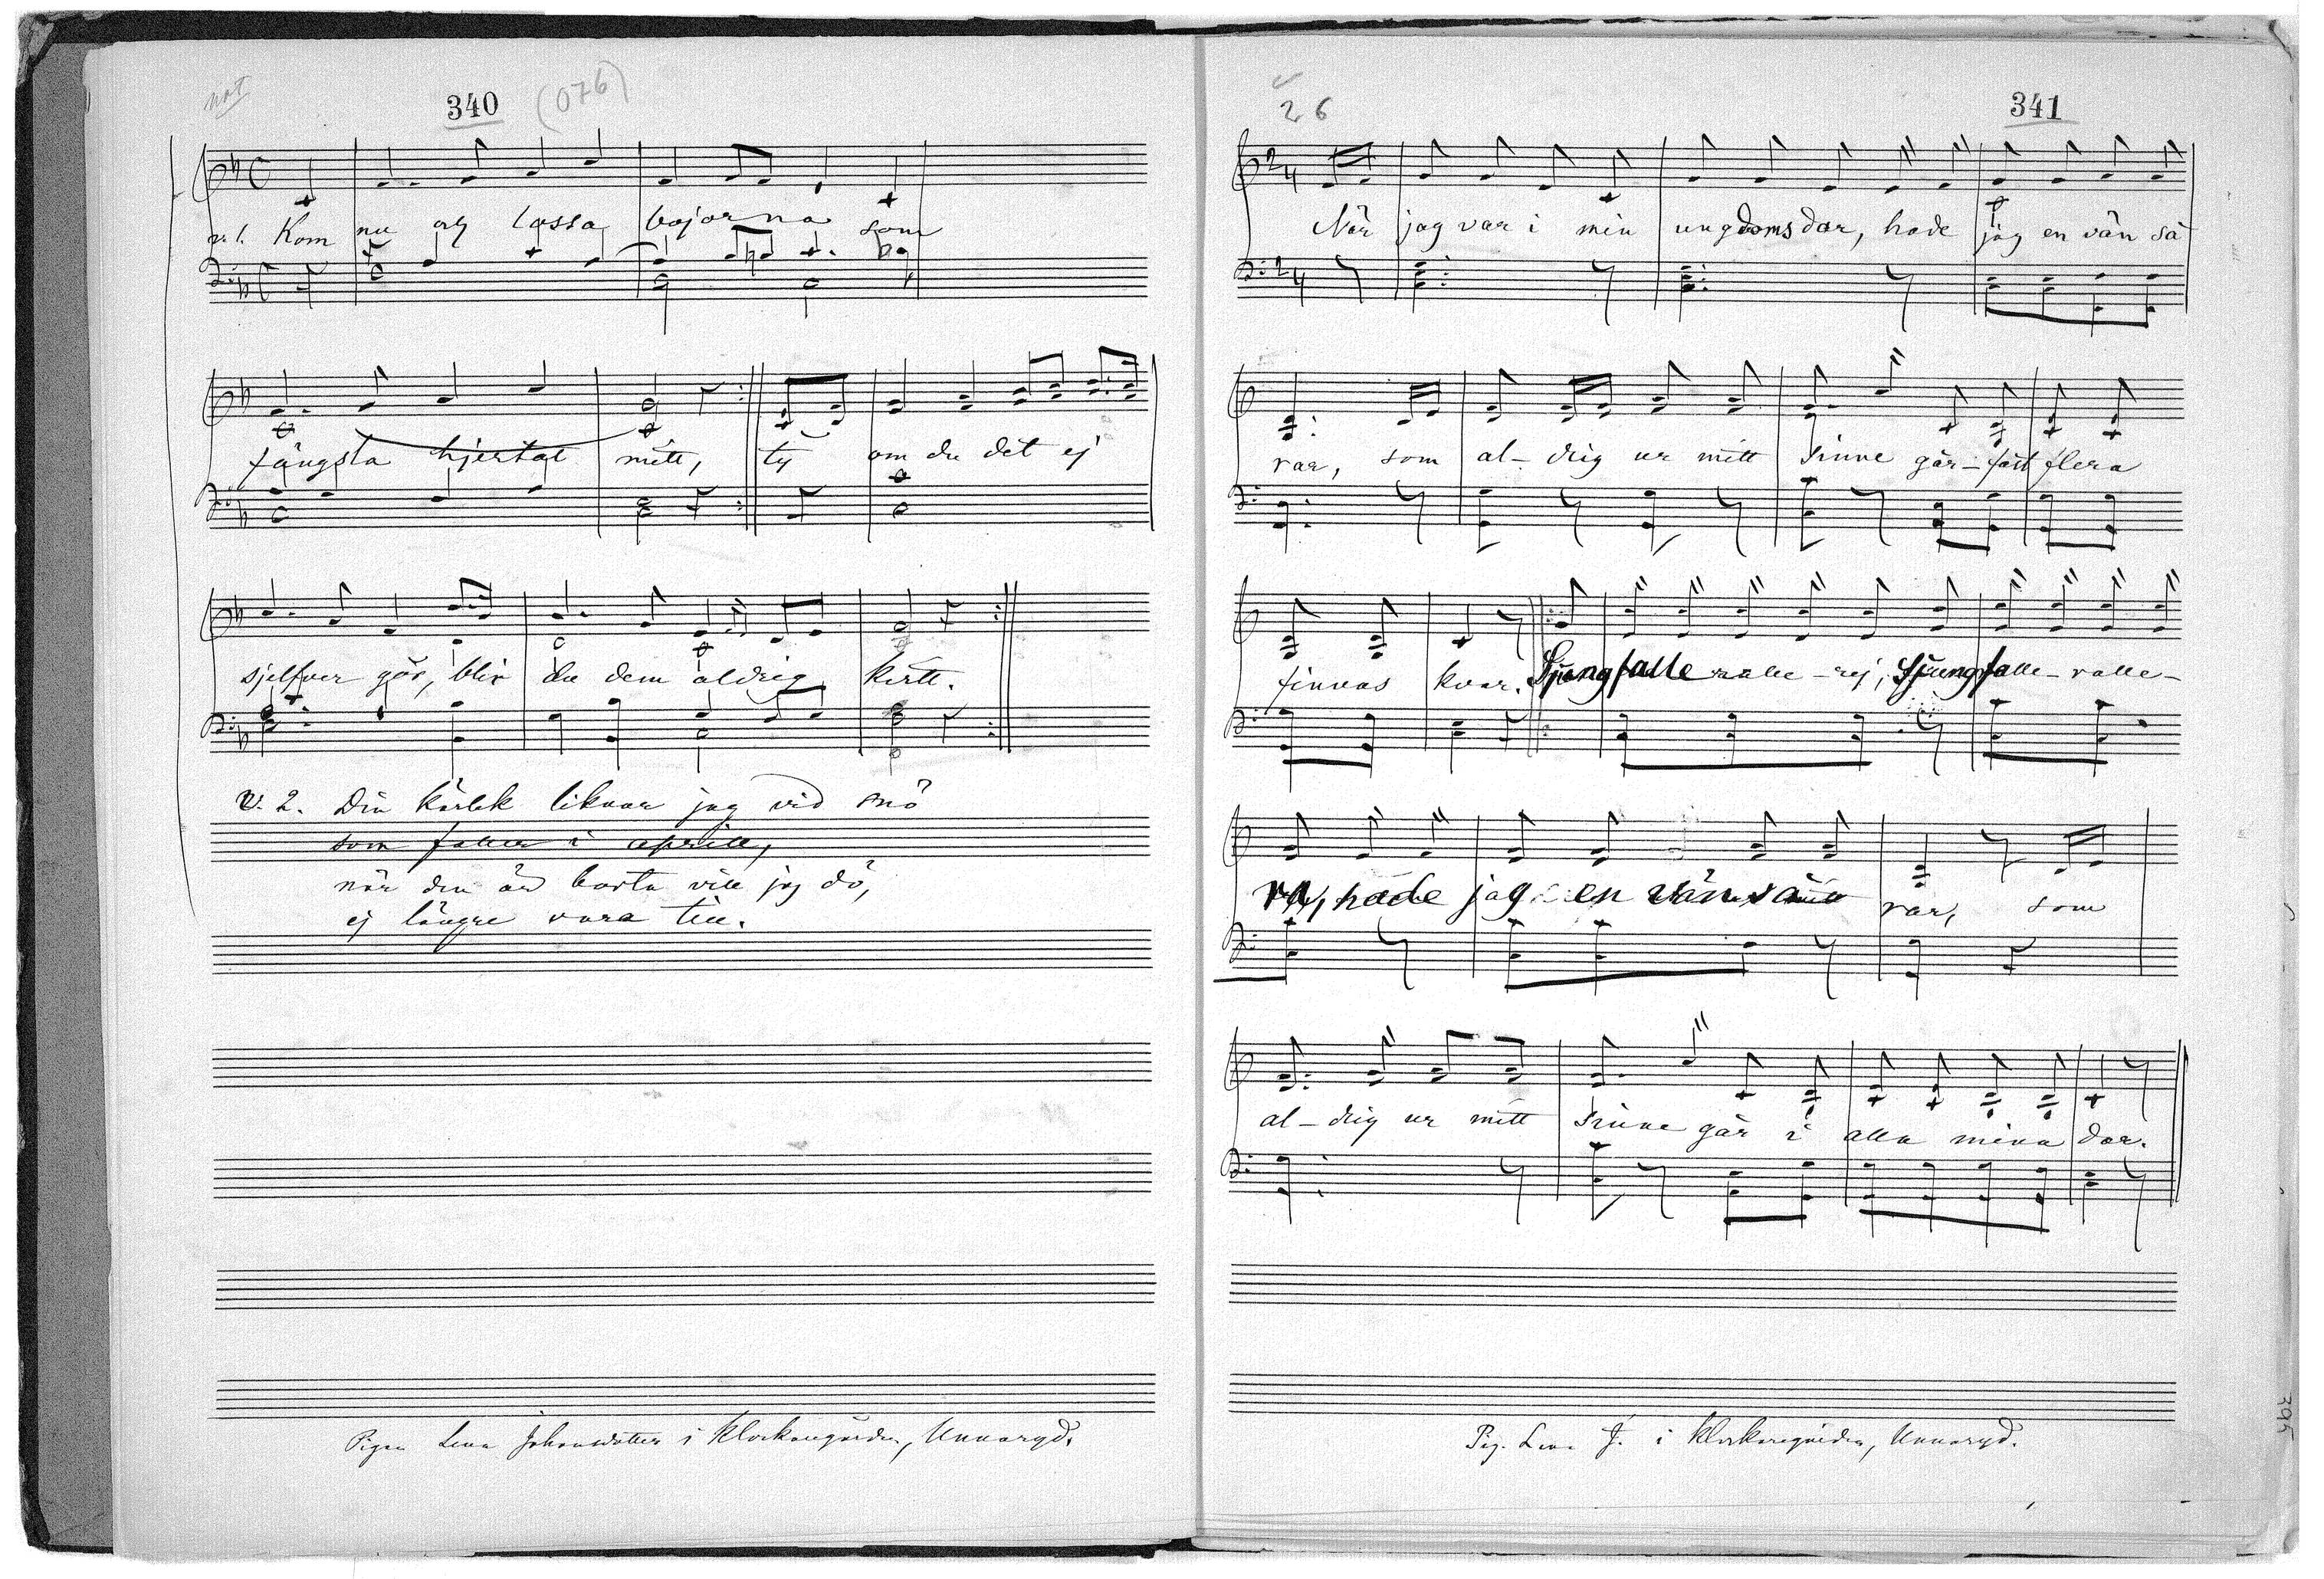 not
340 (076)
v. 1. Kom nu og lossa bojorna som
fängsla hjertat mitt, ty om du det ej
sjelfver gör, blir du dem aldrig kvitt.
v. 2. Din kärlek liknar jag vid snö
som faller i aprill,
när den är borta vill jag dö,
ej längre vara till.
Pigan Lena Johansdotter i Klockaregården, Unnaryd.
26
341
När jag var i min ungdomsdar, hade jag en vän så
rar, som al-drig ur mitt sinne går - fast flera
finnas kvar. Sjungfalle ralle-rej, Sjungfalle-ralle-
ra, hade jag en vän så rar, som
al-drig ur mitt sinne går i alla mina dar.
Pig. Lena J. i Klockaregården, Unnaryd.
395